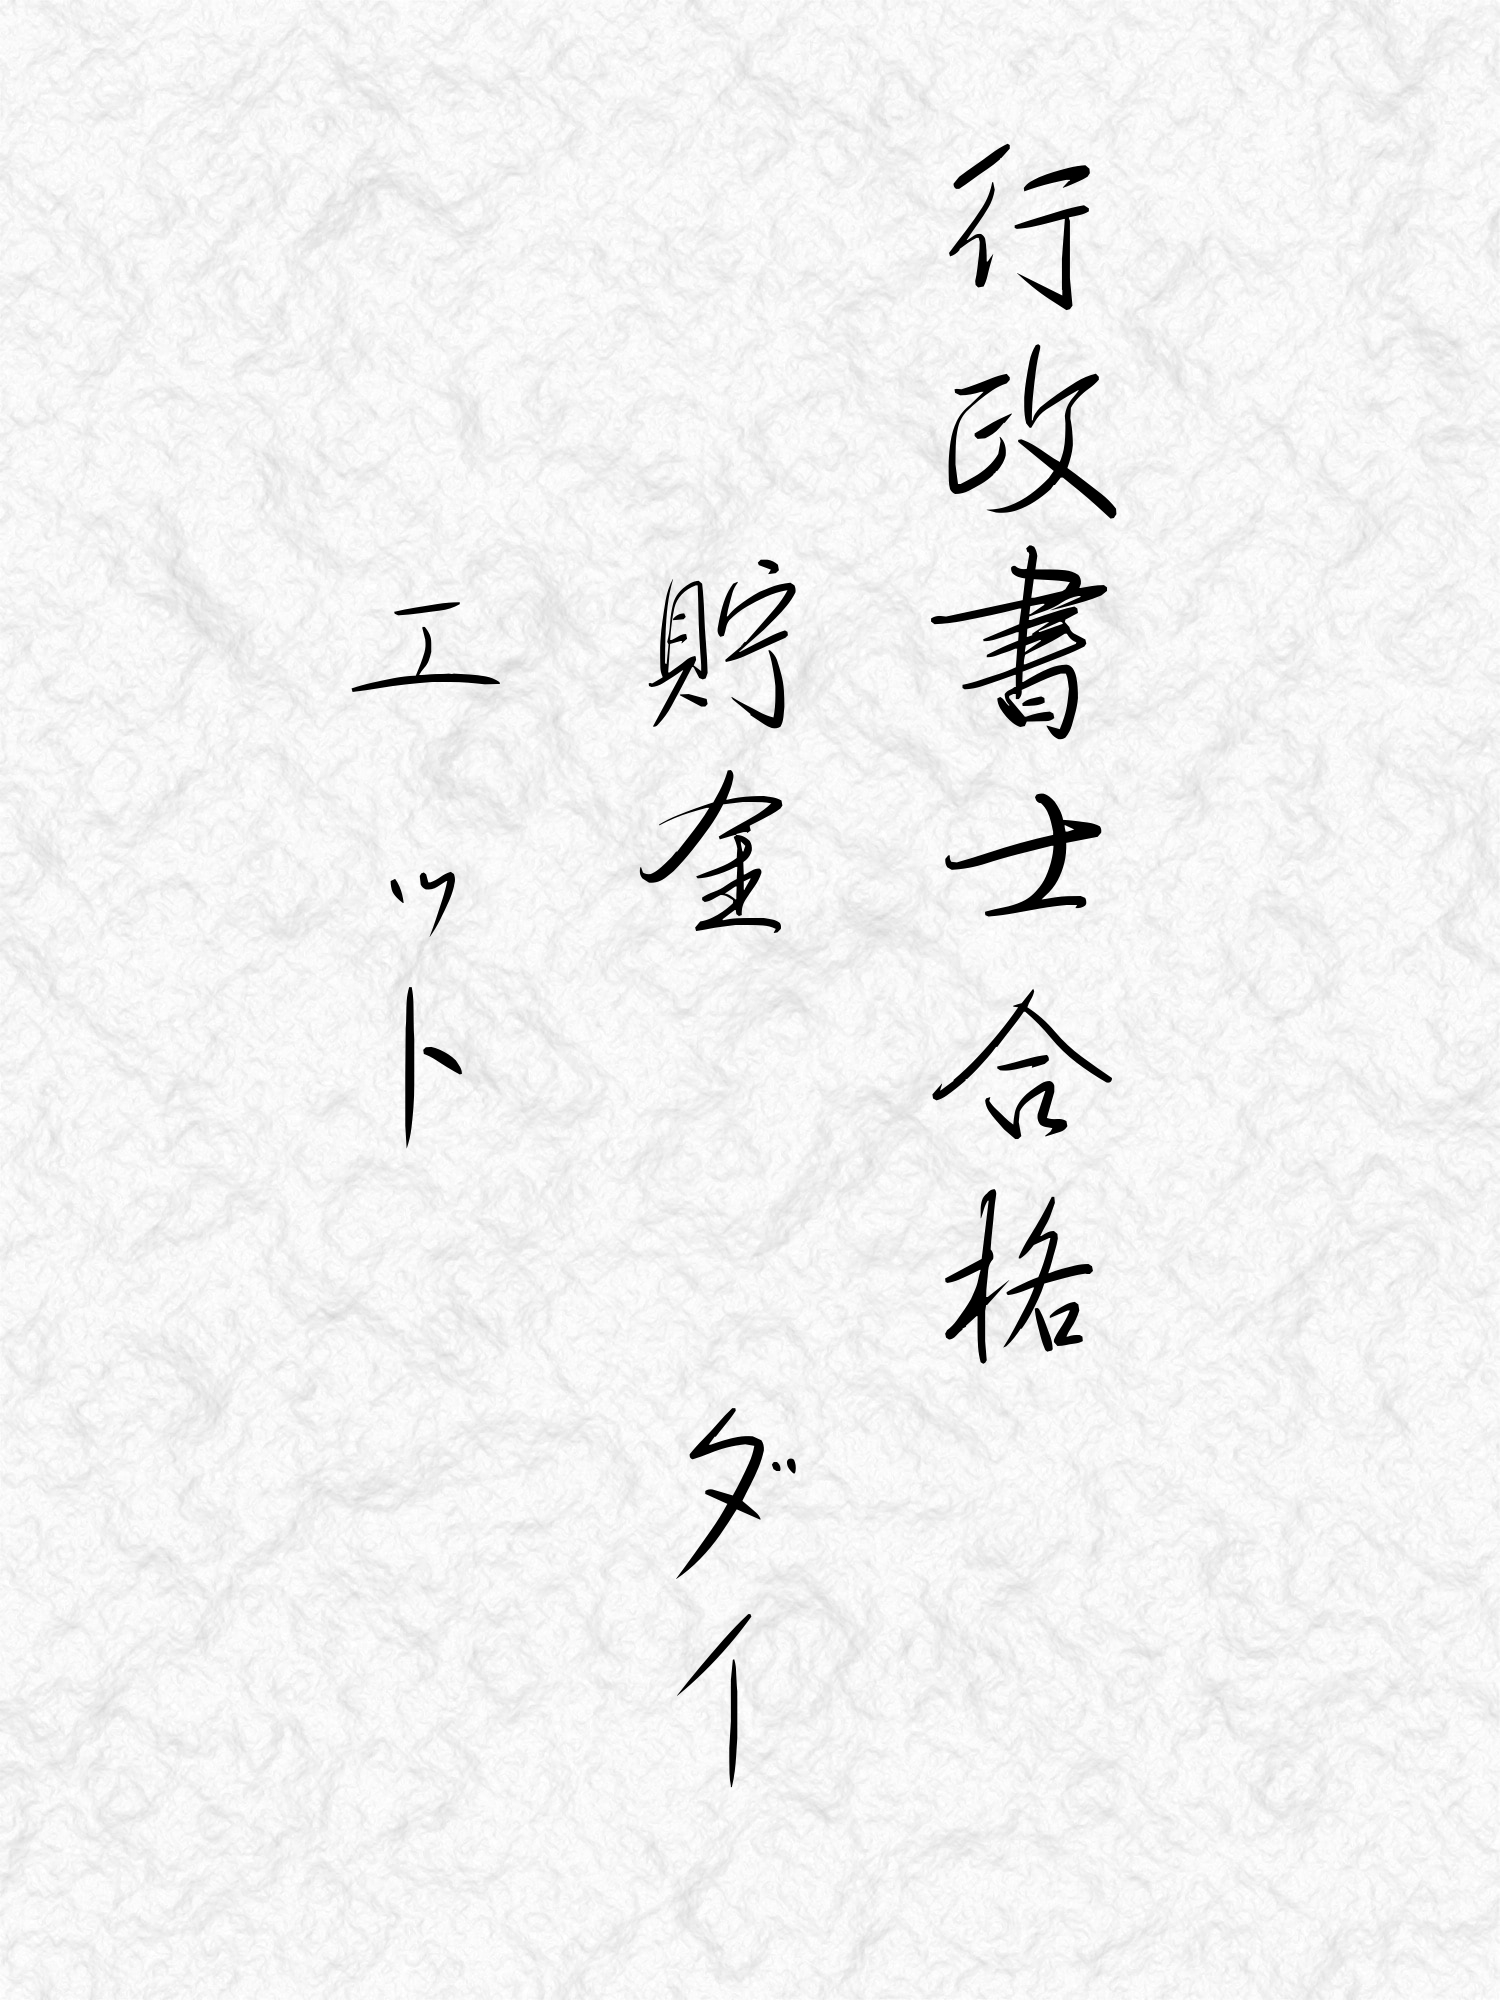 行政書士合格
貯金　ダイ
エット